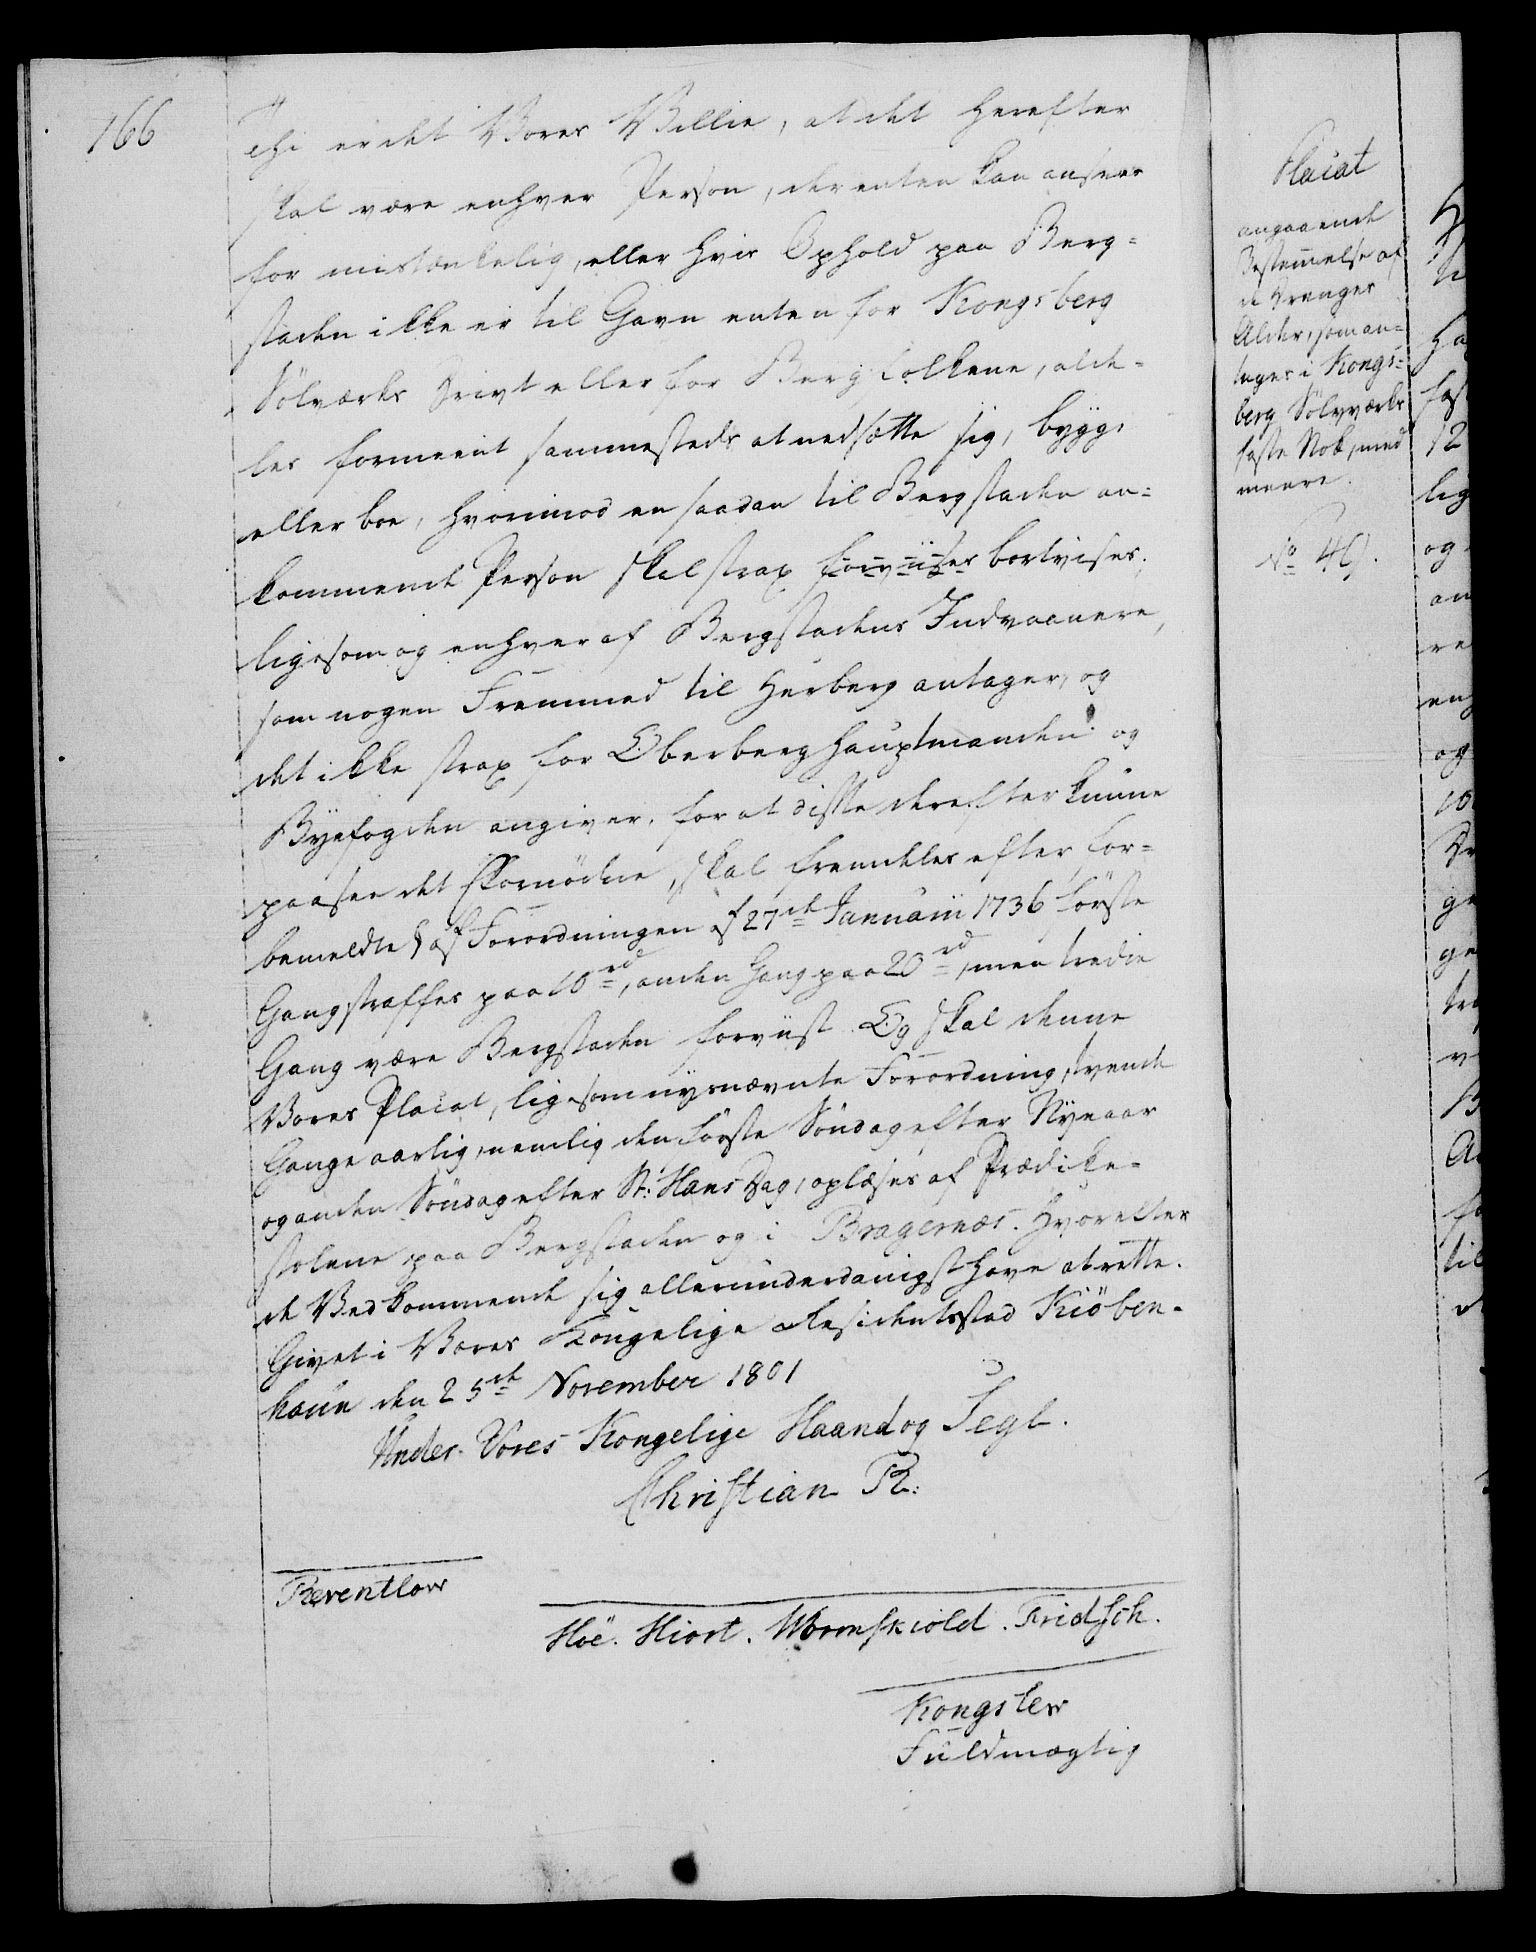 166
Thi er det Vores Villie, at det herefter
skal være enhver Person, der enten kan ansees
for mistænkelig, eller hvis Ophold paa Berg-
staden ikke er til Gavn enten for Kongsberg
Sölvværks Drivt eller for Bergfolkene, alde-
les formeent sammesteds at nedsætte sig, bygge
eller boe, hvorimod en saadan til Bergstaden an-
kommende Person skal strax forviises bortvises;
ligesom og enhver af Bergstadens Indvaanere,
som nogen Fremmed til Herberg antager, og
det ikke strax for Oberberghauptmanden og
Byefogden angiver, for at disse derefter kunne
paasee det Fornödne, skal fremdeles efter for-
bemeldte § af Forordningen af 27de Januarii 1736 förste
Gang straffes paa 10 rd, anden Gang paa 20 rd, men tredie
Gang være Bergstaden forviist. Og skal denne
Vores Placat, ligesom nysnævnte Forordning, tvende
Gange aarlig, nemlig den förste Söndag efter Nyeaar
og anden Söndag efter St: Hans Dag, oplæses af Prædike-
stolene paa Bergstaden og i Bragernæs. Hvorefter
de Vedkommende sig allerunderdanigst have at rette.
Givet i Vores Kongelige Residentsstad Kiöben-
havn den 25de November 1801
Under Vores Kongelige Haand og Segl.
Christian R:
Reventlow
Hoë. Hiort. Wormskiold. Fridsch.
Kongslew
Fuldmægtig
Placat
angaaende
Bestemmelse af
de Drenges
Alder, som an-
tages i Kongs-
berg Sölvværks
faste Stok, med
meere.
No 49.